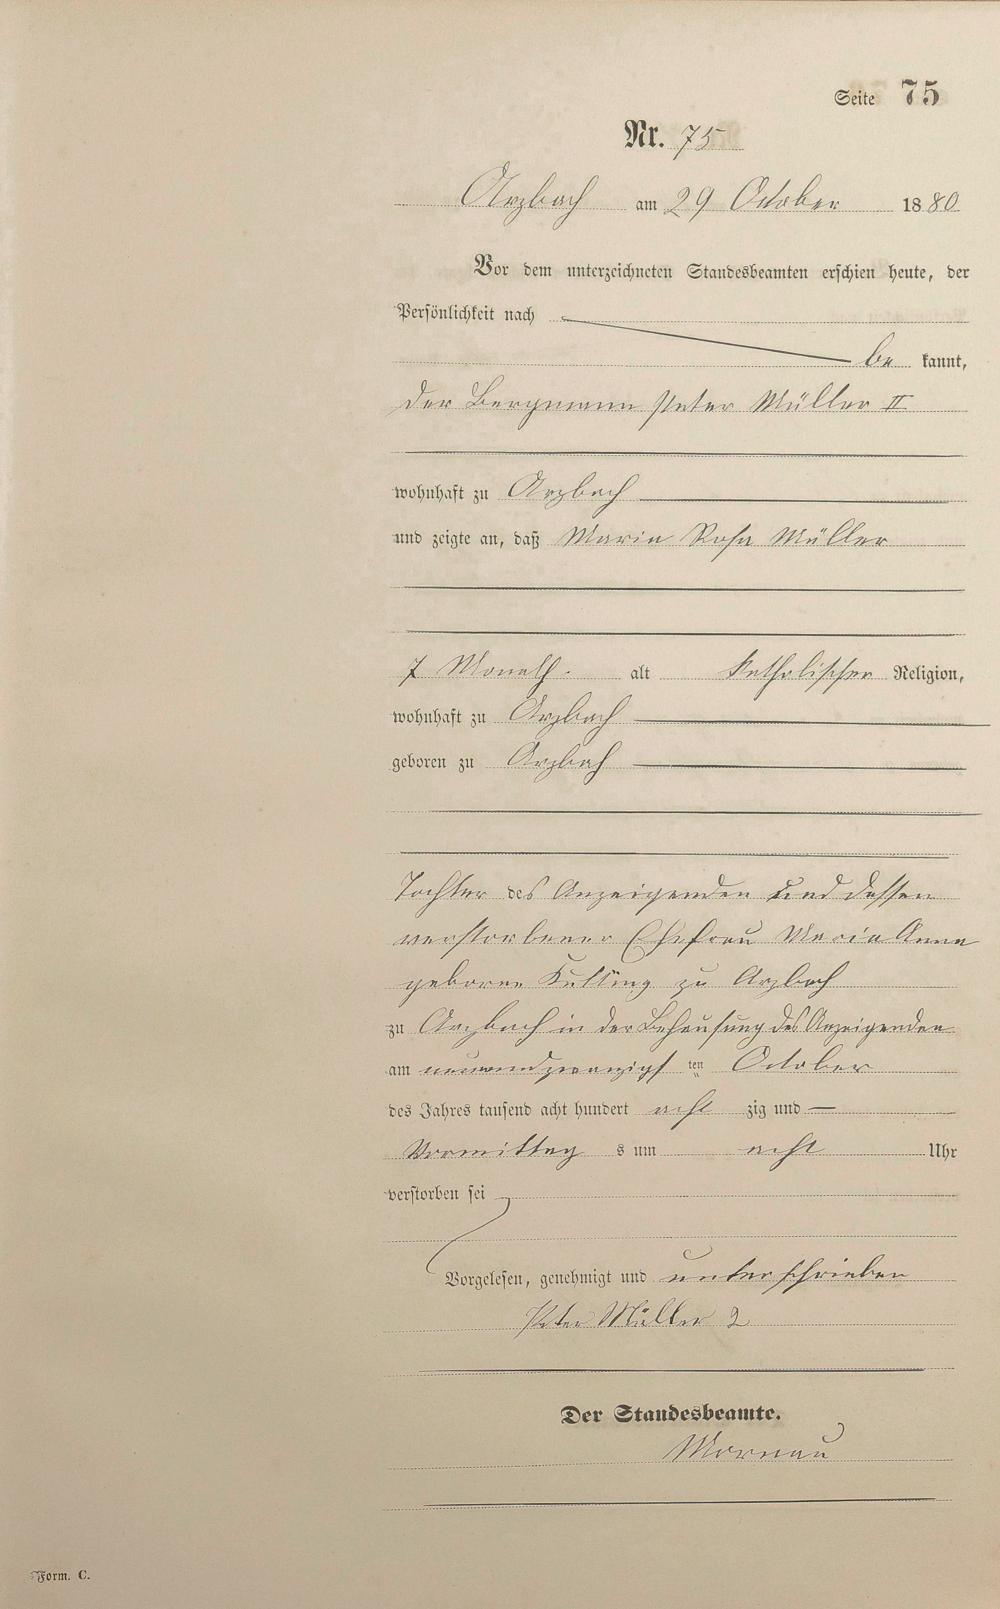 Seite 75
Nr. 75
Arzbach am 29 October 1880
Vor dem unterzeichneten Standesbeamten erschien heute, der
Persönlichkeit nach
be kannt,
der Bergmann Peter Müller II
wohnhaft zu Arzbach
und zeigte an, daß Maria Rosa Müller
7 Monath. alt katholischer Religion,
wohnhaft zu Arzbach
geboren zu Arzbach
Tochter des Anzeigenden und dessen
verstorbener Ehefrau Maria Anna
geborne zu Arzbach
zu Arzbach in der Behausung des Anzeigenden
am neunundzwanzigs ten October
des Jahres tausend acht hundert acht zig und —
Vormittag s um acht Uhr
verstorben sei
Vorgelesen, genehmigt und unterschrieben
Peter Müller 2
Der Standesbeamte.
Mornau
Form. C.